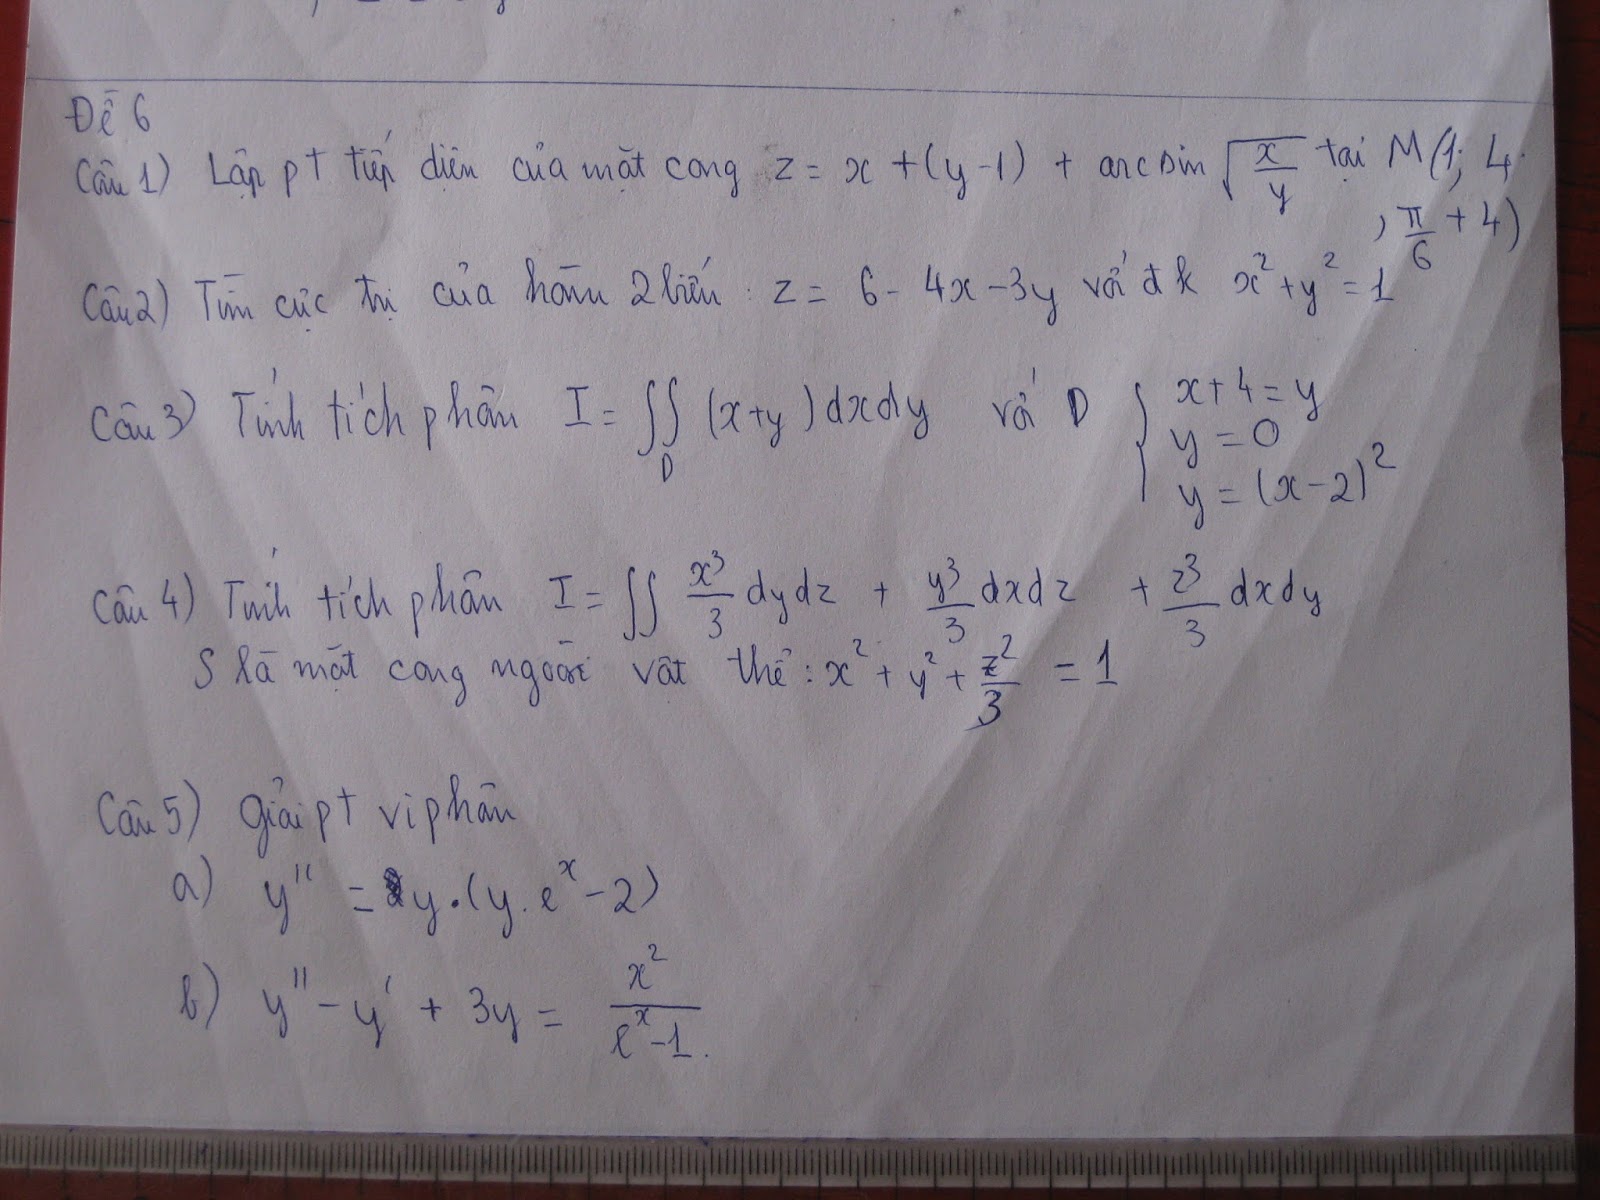 Đề 6
Câu 1) Lập pt tiếp diện của mặt cong z = x + (y-1) + arcsin √(x/y) tại M(1; 4
; π/6 + 4)
Câu 2) Tìm cực trị của hàm 2 biến: z = 6 - 4x - 3y với đk x² + y² = 1
Câu 3) Tính tích phân I = ∬_D (x+y)dxdy với D { x + 4 = y
y = 0
y = (x-2)²
Câu 4) Tính tích phân I = ∬ x³/3 dydz + y³/3 dxdz + z³/3 dxdy
S là mặt cong ngoài vật thể: x² + y² + z²/3 = 1
Câu 5) Giải pt vi phân
a) y'' = y.(y.eˣ - 2)
b) y'' - y' + 3y = x²/(eˣ - 1).